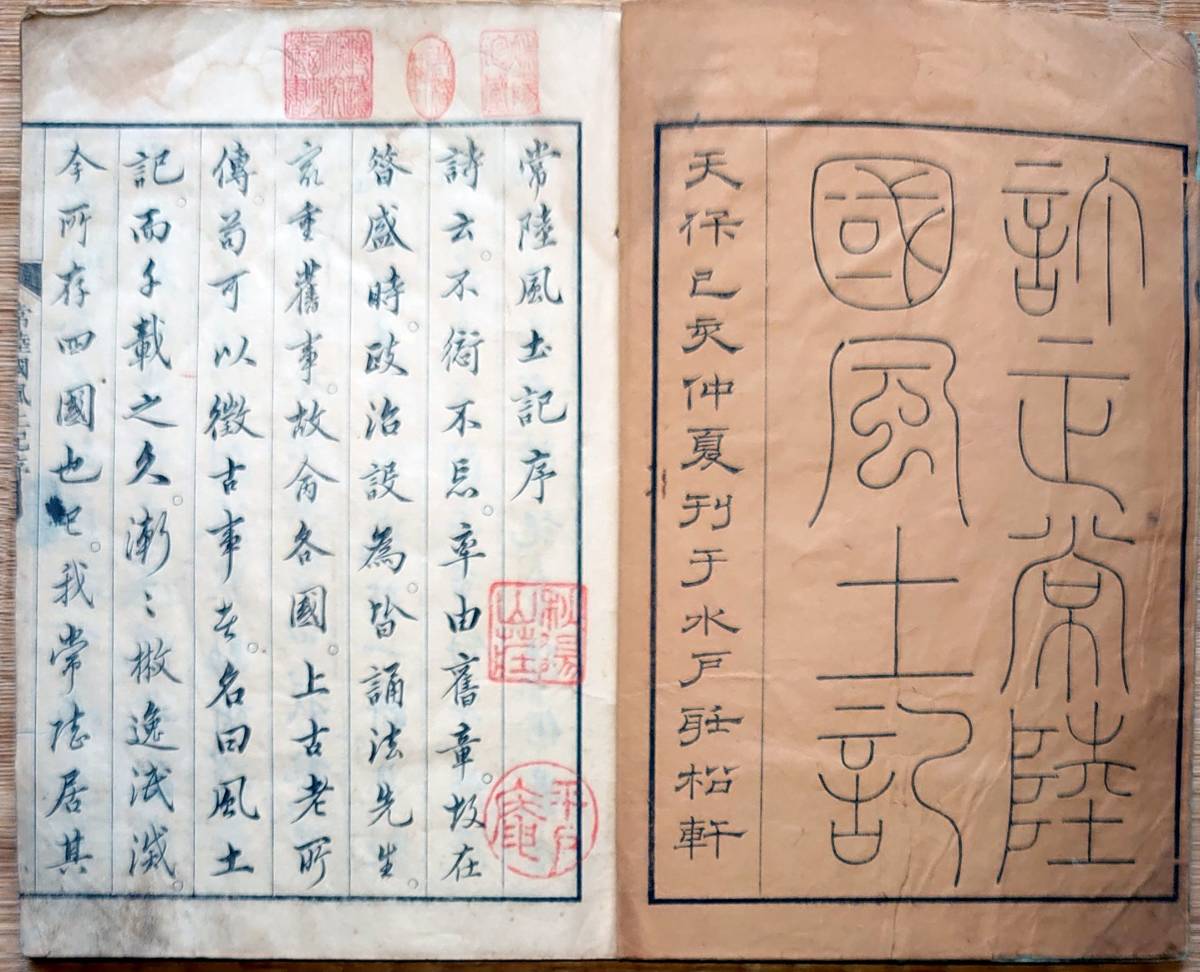 訂正常陸
國風土記
天保己亥仲夏刊于水戶聽松軒
常陸風土記序
詩云。不愆不忘。率由舊章。故在
昔盛時。政治設為。皆誦法先生。
㝡重舊事。故命各國。上古老所
傳苟可以徵古事者。名曰風土
記。而千載之久。漸〻散逸泯滅。
今所存四國也已。我常陸居其
常陸國風土記序